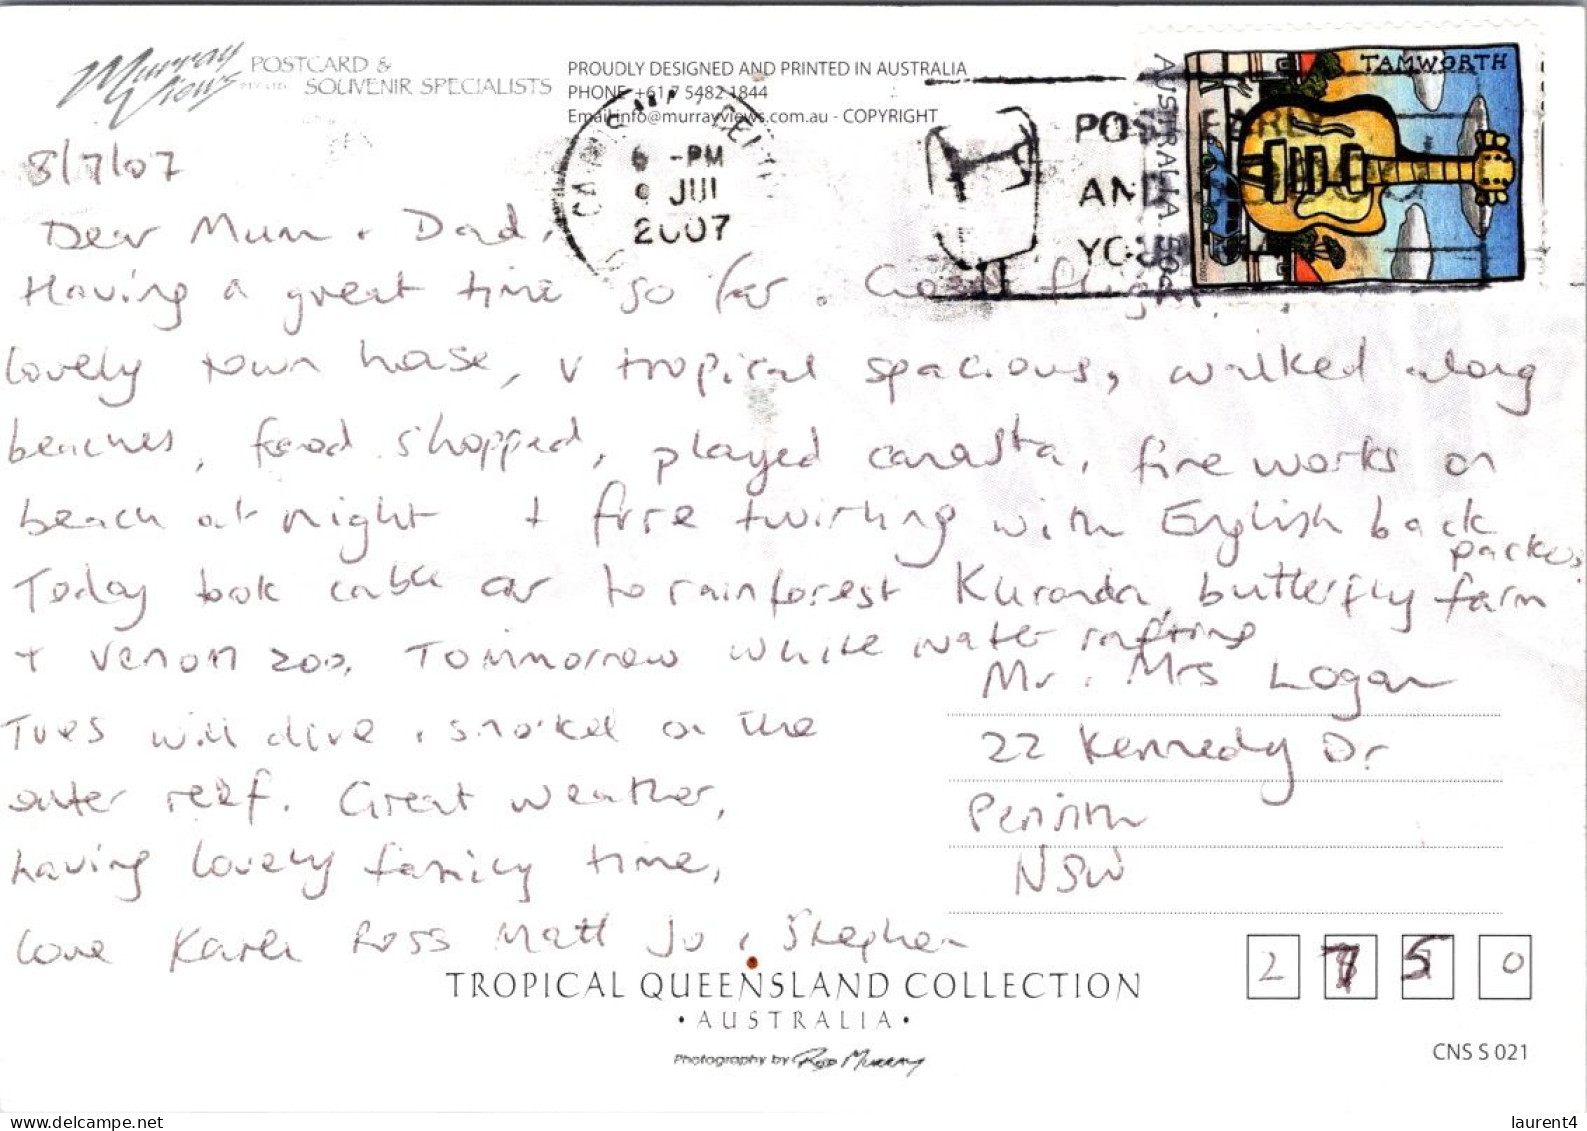 Murray Views PTY. LTD. POSTCARD &
SOUVENIR SPECIALISTS
PROUDLY DESIGNED AND PRINTED IN AUSTRALIA
PHONE +61 7 5482 1844
Email info@murrayviews.com.au - COPYRIGHT
CAIRNS
6 -PM
9 JUL
2007
POST EARLY
AND
YOUR
TAMWORTH
AUSTRALIA 50c
8/7/07
Dear Mum + Dad,
Having a great time so far. Good flight,
lovely town house, v tropical spacious, walked along
beaches, food shopped, played canasta, fire works on
beach at night + fire twirling with English back
packers.
Today took cable car to rainforest Kuranda, butterfly farm
+ venom zoo. Tommorrow white water rafting
Tues will dive + snorkel on the
outer reef. Great weather,
having lovely family time,
love Karen Ross Matt Jo + Stephen
Mr + Mrs Logan
22 Kennedy Dr
Penrith
NSW
2 7 5 0
TROPICAL QUEENSLAND COLLECTION
• AUSTRALIA •
Photography by Rod Murray
CNS S 021
laurent4